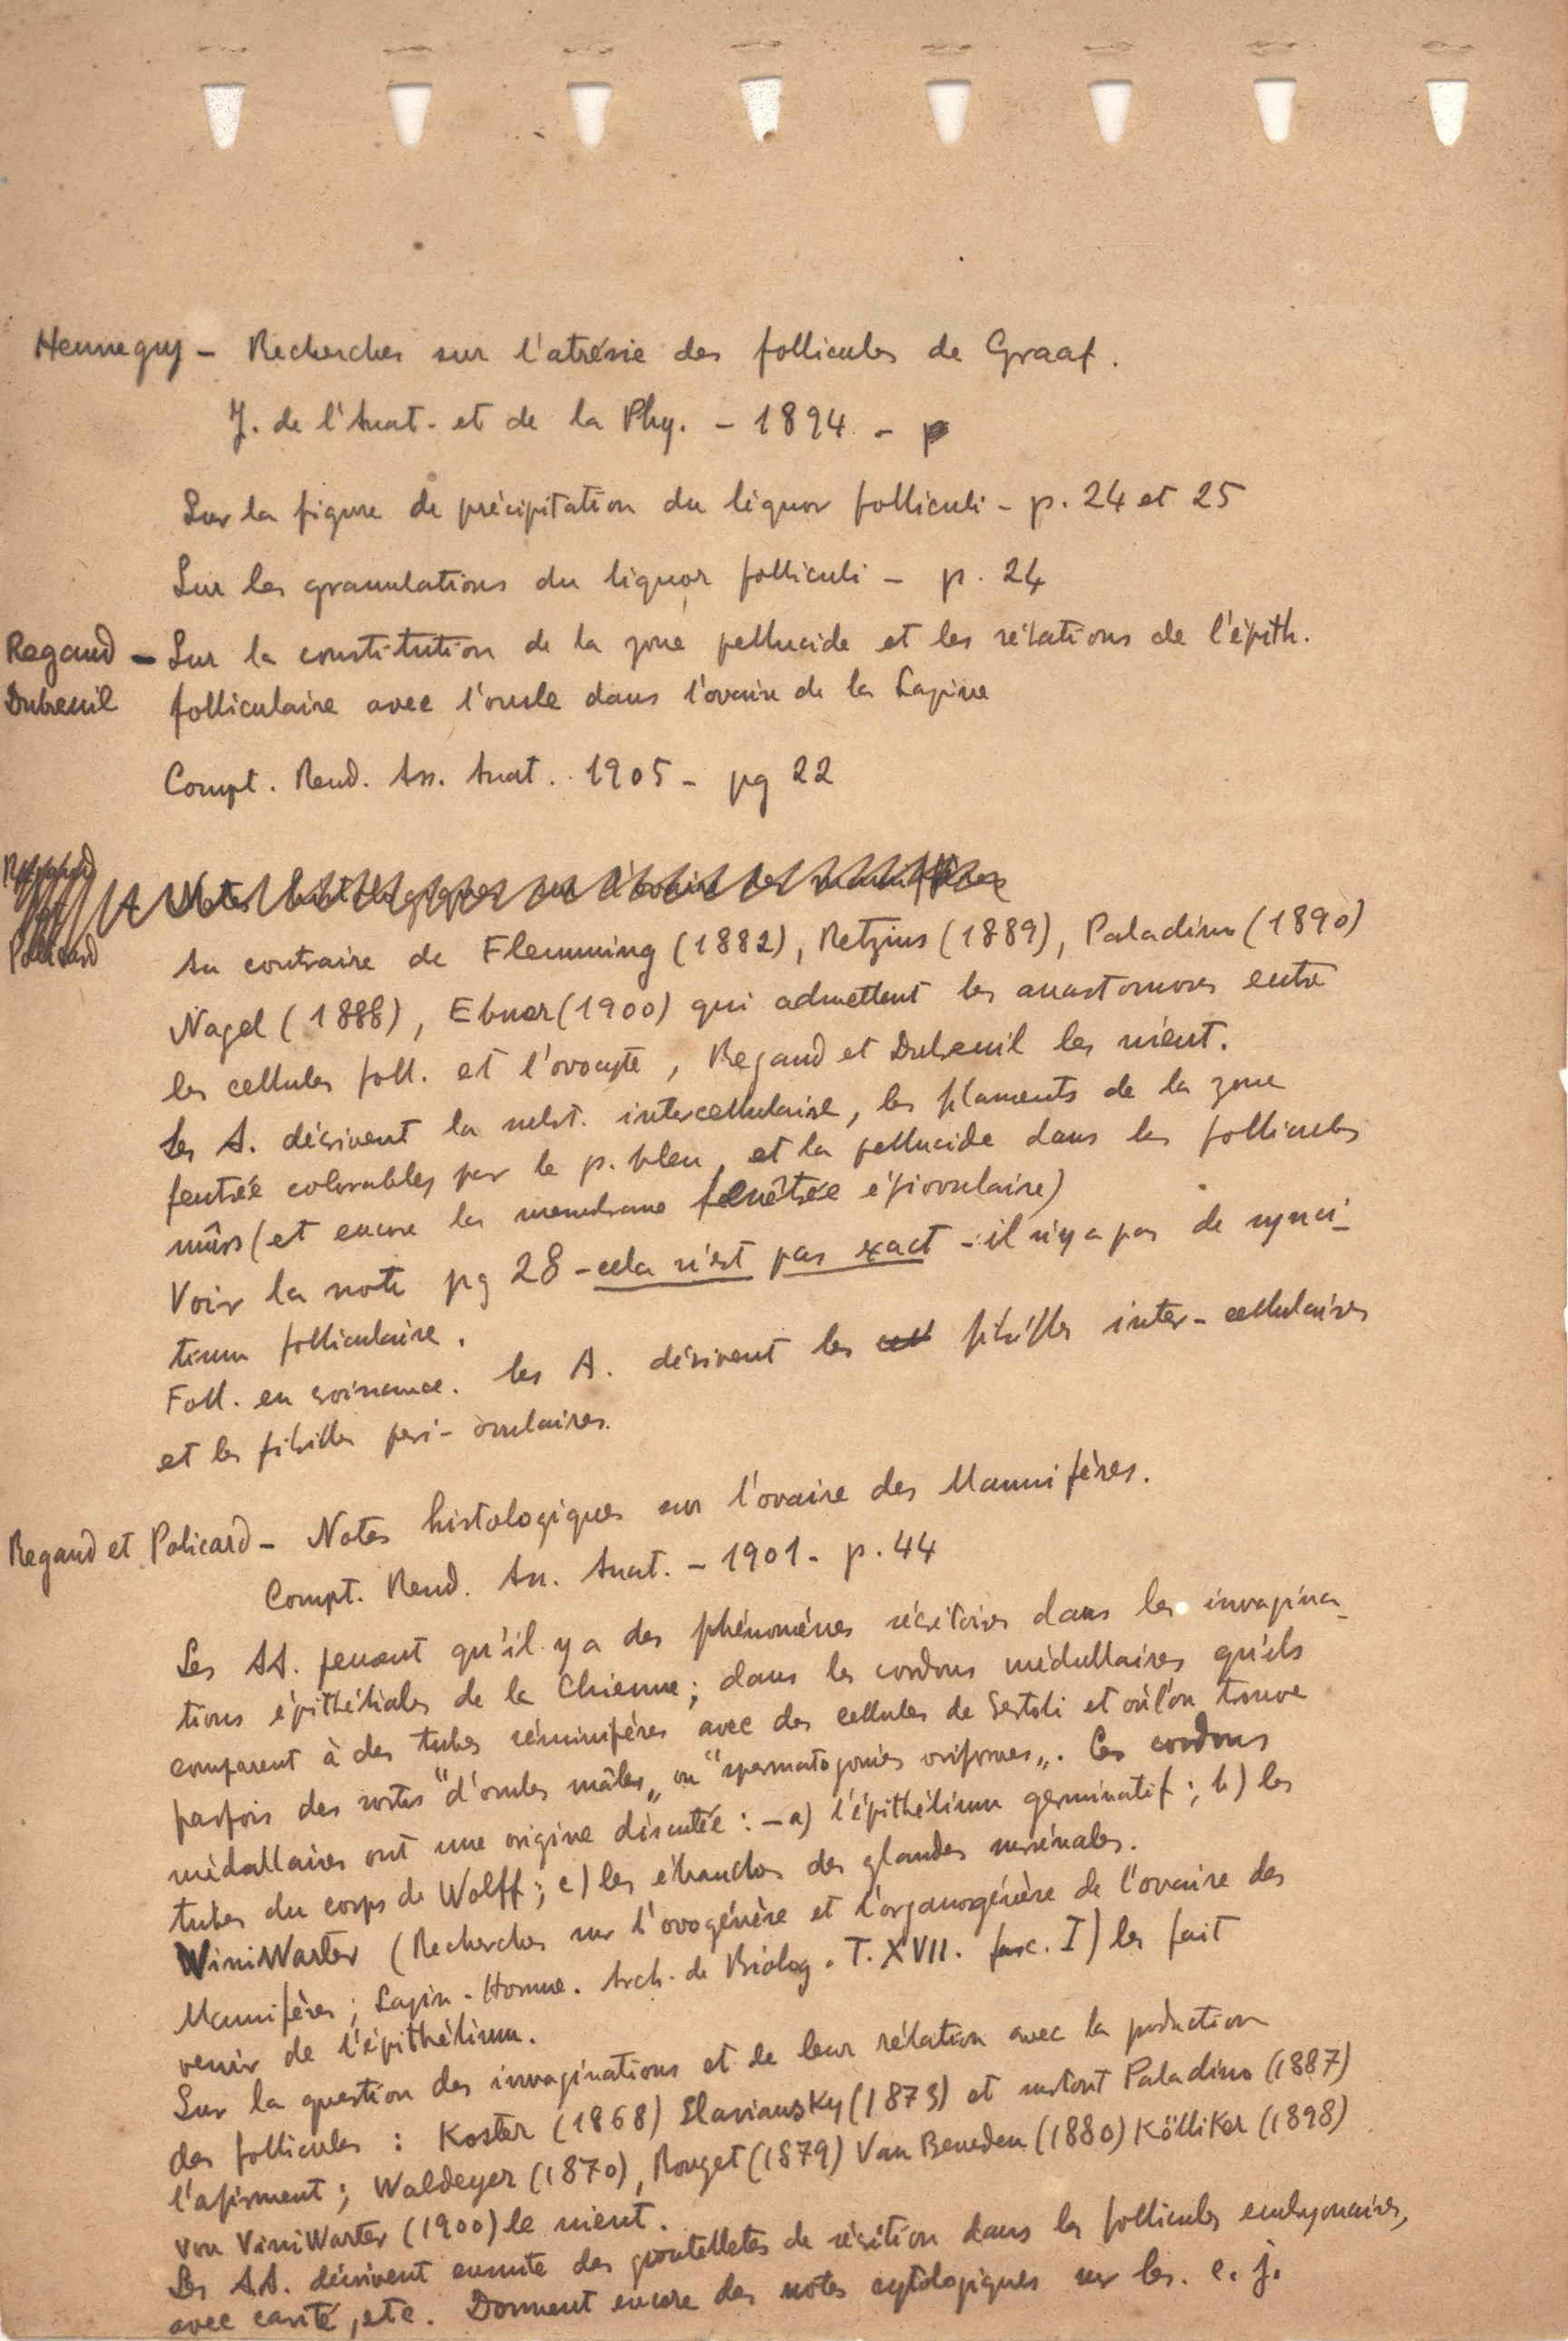 Henneguy - Recherches sur l'atrésie des follicules de Graaf.
J. de l'Anat. et de la Phy. - 1894 - p
Sur la figure de précipitation du liquor folliculi - p. 24 et 25
Sur les granulations du liquor folliculi - p. 24
Regaud - Sur la constitution de la zone pellucide et les rélations de l'épith.
Dubreuil folliculaire avec l'ovule dans l'ovaire de la Lapine
Compt. Rend. Ass. Anat. 1905 - pg 22
Regaud Notes histologiques sur l'ovaire des mammifères
et
Policard
Au contraire de Flemming (1882), Retzius (1889), Paladino (1890)
Nagel (1888), Ebner (1900) qui admettent les anastomoses entre
les cellules foll. et l'ovocyte, Regaud et Dubreuil les nient.
Les A. décrivent la subst. intercellulaire, les filaments de la zone
feutrée colorables par le p. bleu, et la pellucide dans les follicules
mûrs (et encore la membrane fenêtrée épiovulaire)
Voir la note pg 28 - cela n'est pas exact - il n'y a pas de synci-
tium folliculaire.
Foll. en croissance. Les A. décrivent les cell fibrilles inter-cellulaires
et les fibrilles peri-ovulaires.
Regaud et Policard - Notes histologiques sur l'ovaire des Mammifères.
Compt. Rend. Ass. Anat. - 1901 - p. 44
Les AA. pensent qu'il y a des phénomènes sécrétoires dans les invagina-
tions épithéliales de la Chienne; dans les cordons médullaires qu'ils
comparent à des tubes séminifères avec des cellules de Sertoli et où l'on trouve
parfois des sortes "d'ovules mâles„ ou "spermatogonies oviformes„. Ces cordons
médullaires ont une origine discutée: - a) l'épithélium germinatif; b) les
tubes du corps de Wolff; c) les ébauches des glandes surrénales.
WiniWarter (Recherches sur l'ovogénèse et l'organogénèse de l'ovaire des
Mammifères; Lapin - Homme. Arch. de Biolog. T. XVII. fasc. I) les fait
venir de l'épithélium.
Sur la question des invaginations et de leur rélation avec la production
des follicules: Koster (1868) Slaviansky (1873) et surtout Paladino (1887)
l'afirment; Waldeyer (1870), Rouget (1879) Van Beneden (1880) Kölliker (1898)
von ViniWarter (1900) le nient.
Les AA. décrivent ensuite des goutelletes de sécrétion dans les follicules embryonaires,
avec cavité, etc. Donnent encore des notes cytologiques sur les. c. j.